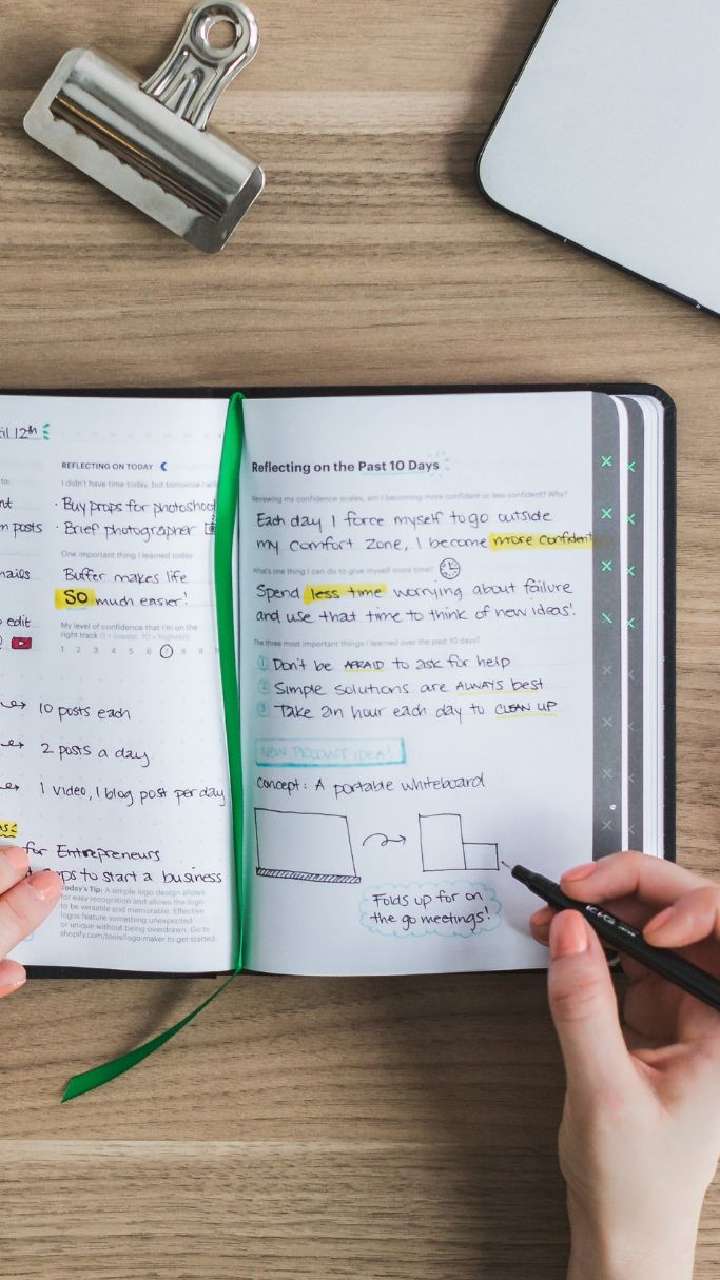 il 12th
REFLECTING ON TODAY
I didn't have time today, but tomorrow I will
· Buy props for photoshoot
· Brief photographer
One important thing I learned today
Buffer makes life
SO much easier!
My level of confidence that I'm on the
right track (1 = lowest, 10 = highest)
1 2 3 4 5 6 7 8 9
to:
nt
n posts
nails
edit
10 posts each
2 posts a day
1 video, 1 blog post per day
for Entrepreneurs
to start a business
Today's Tip: A simple logo design allows
for easy recognition and allows the logo
to be versatile and memorable. Effective
logos feature something unexpected
or unique without being overdrawn. Go to
shopify.com/tools/logo-maker to get started.
Reflecting on the Past 10 Days
Reviewing my confidence scales, am I becoming more confident or less confident? Why?
Each day I force myself to go outside
my comfort zone, I become more confident
What's one thing I can do to give myself more time?
Spend less time worrying about failure
and use that time to think of new ideas!
The three most important things I learned over the past 10 days?
1 Don't be AFRAID to ask for help
2 Simple solutions are ALWAYS best
3 Take an hour each day to CLEAN UP
NEW PRODUCT IDEA!
Concept: A portable whiteboard
Folds up for on
the go meetings!